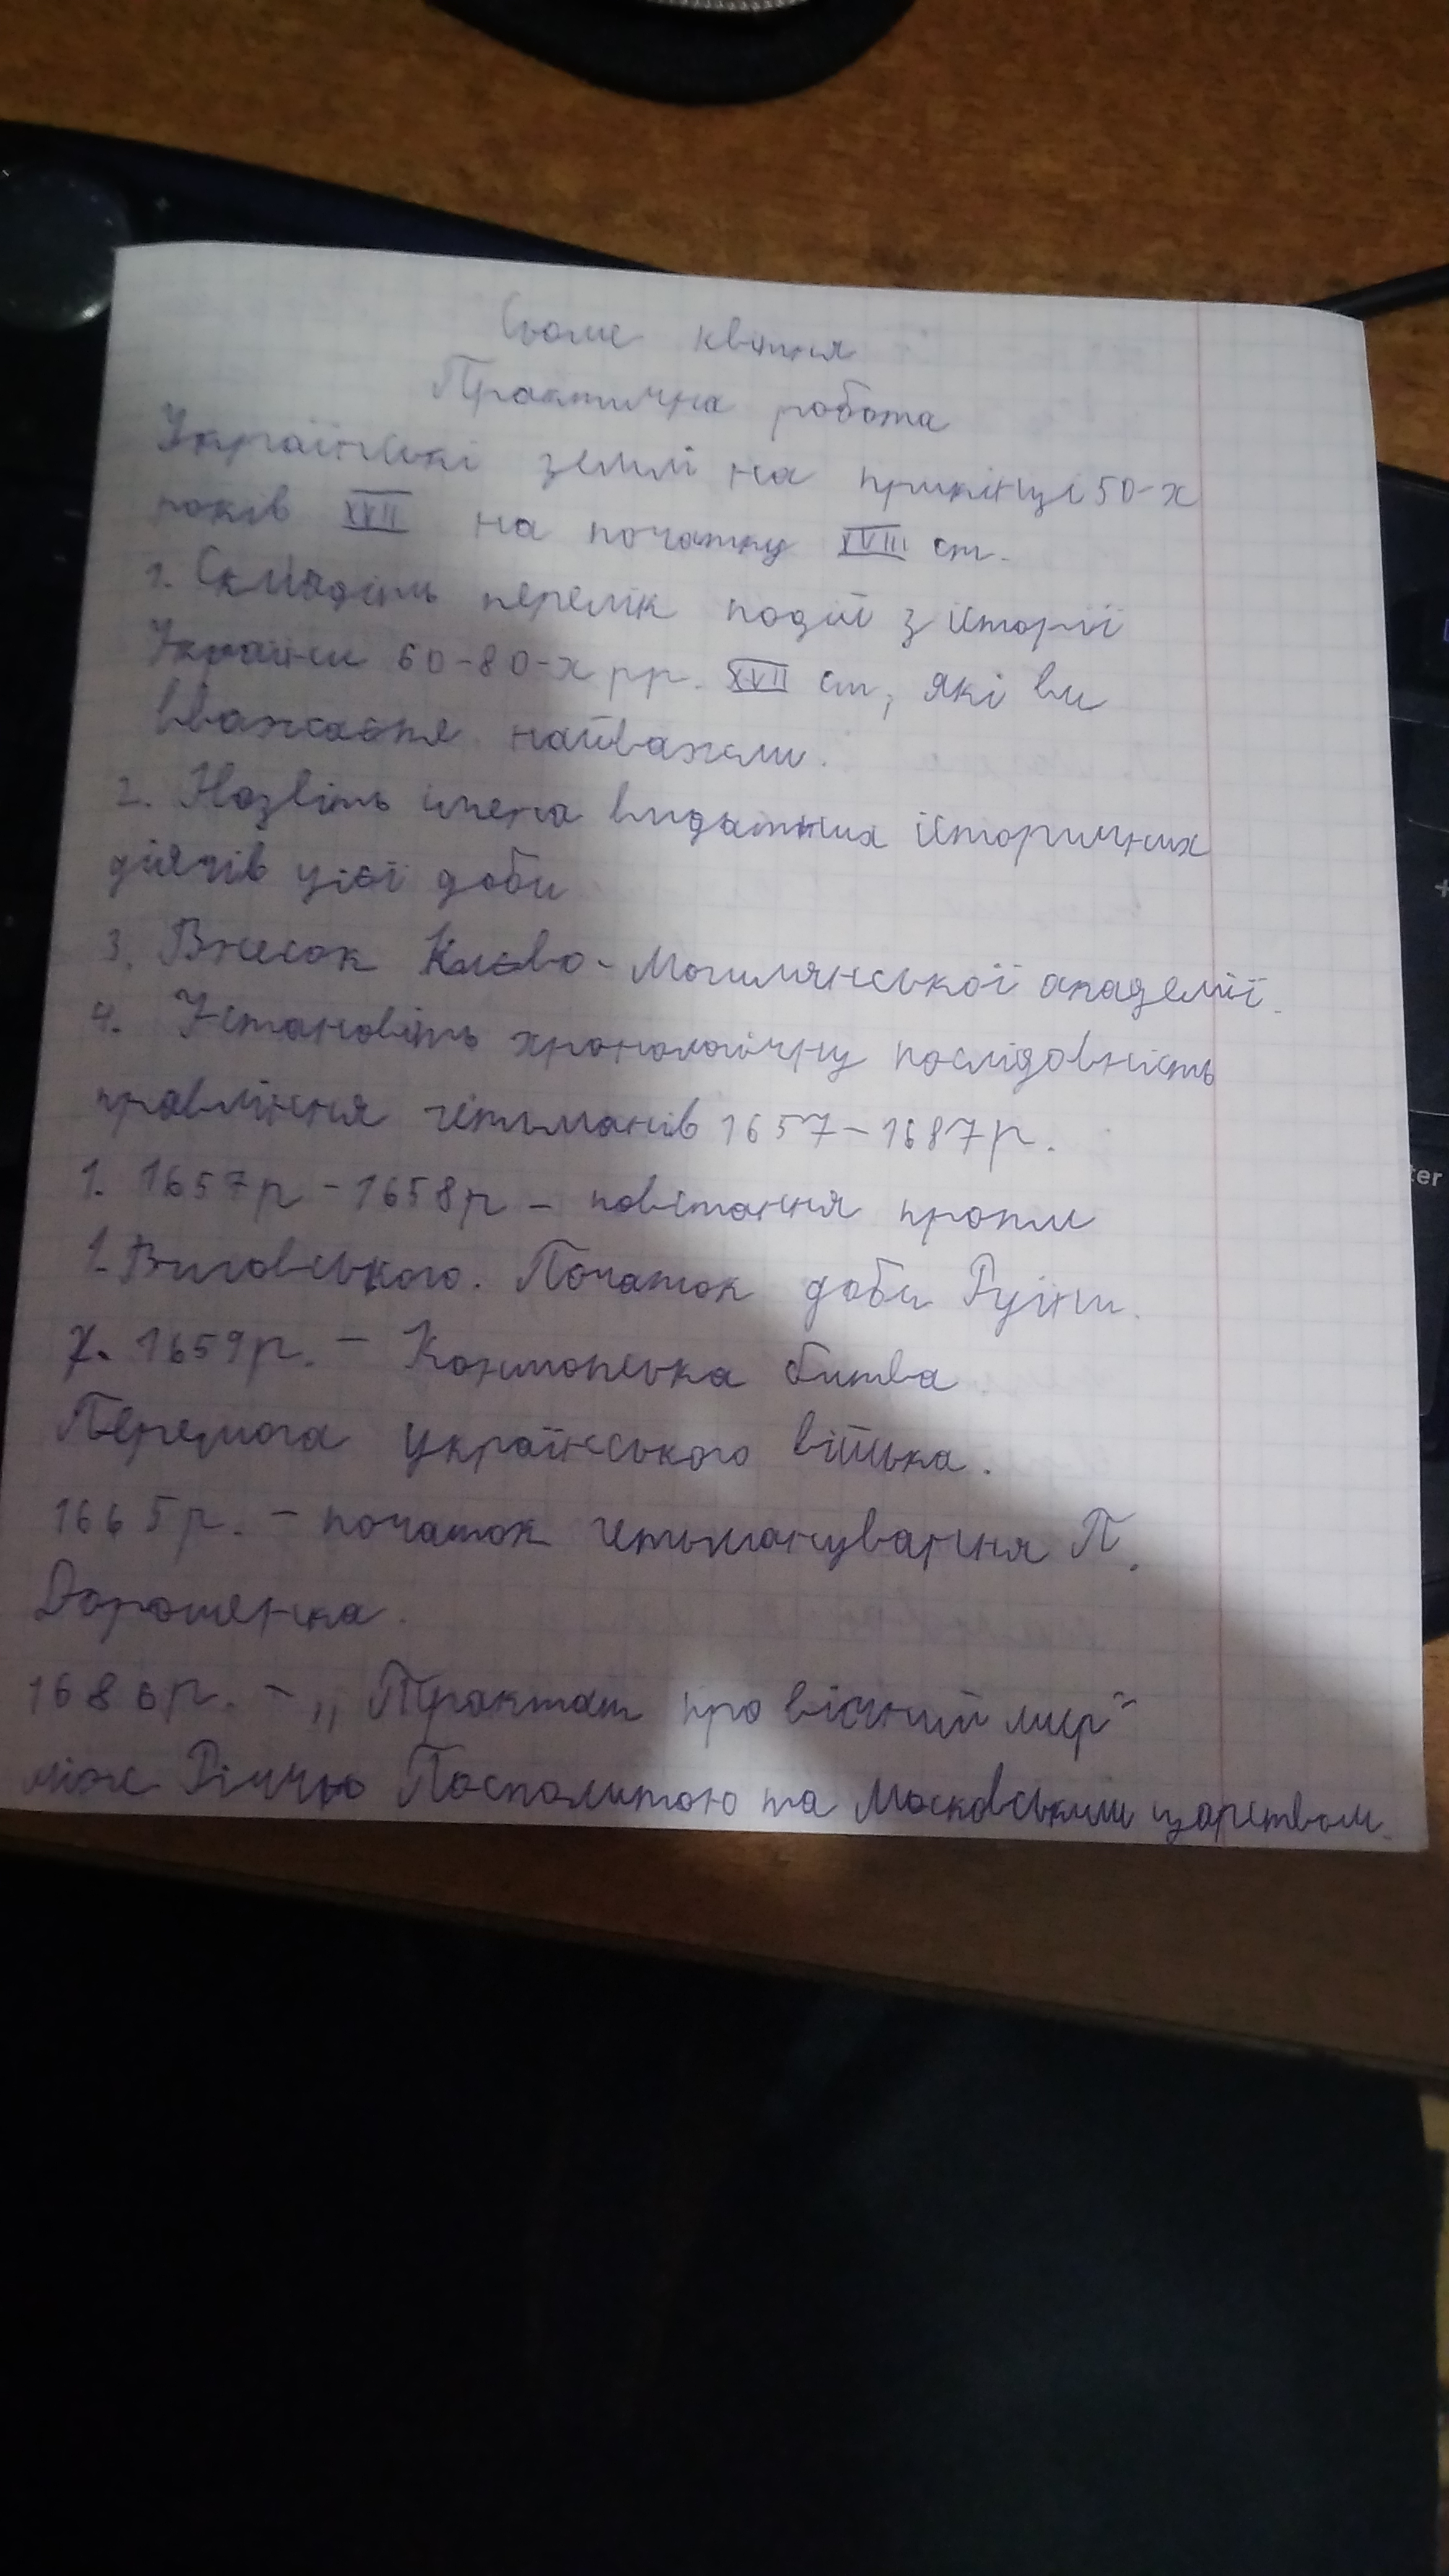 Сьоме квітня
Практична робота
Українські землі на прикінці 50-х
років XVII на початку XVIII ст.
1. Складіть перелік подій з історії
України 60-80-х рр. XVII ст, які ви
вважаєте найважли.
2. Назвіть імена видатних історичних
діячів цієї доби
3. Внесок Києво-Могилянської академії.
4. Установіть хронологічну послідовність
правління гетьманів 1657-1687р.
1. 1657р - 1658р - повстання проти
І. Виговського. Початок доби Руїни.
1659р. - Конотопська битва
Перемога українського війська.
1665р. - початок гетьманування П.
Дорошенка.
1686р. - „Трактат про вічний мир"
між Річчю Посполитою та Московським царством.
ter
+